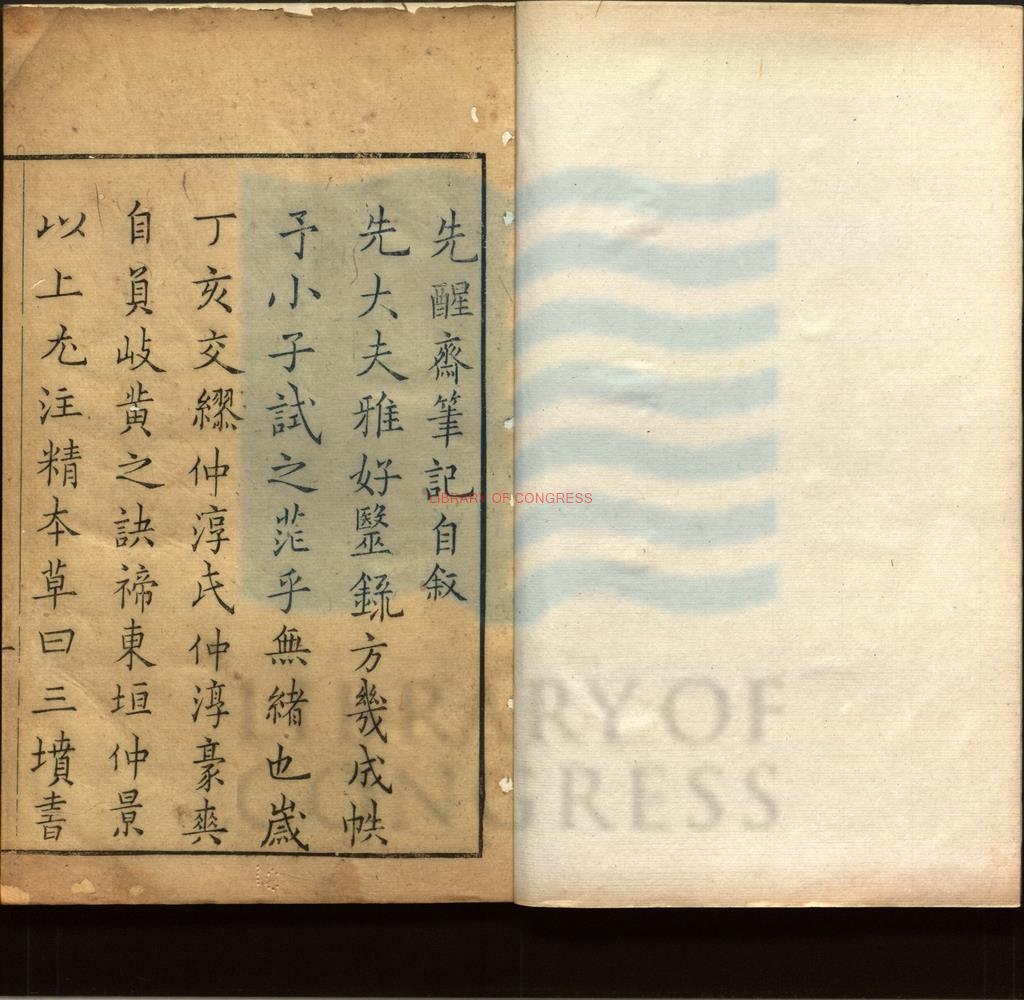 先醒齋筆記自叙
先大夫雅好醫錄方幾成帙
予小子試之茫乎無緒也歲
丁亥交繆仲淳氏仲淳豪爽
自負岐黃之訣禘東垣仲景
以上尤注精本草曰三墳書
一
LIBRARY OF CONGRESS
LIBRARY OF
CONGRESS